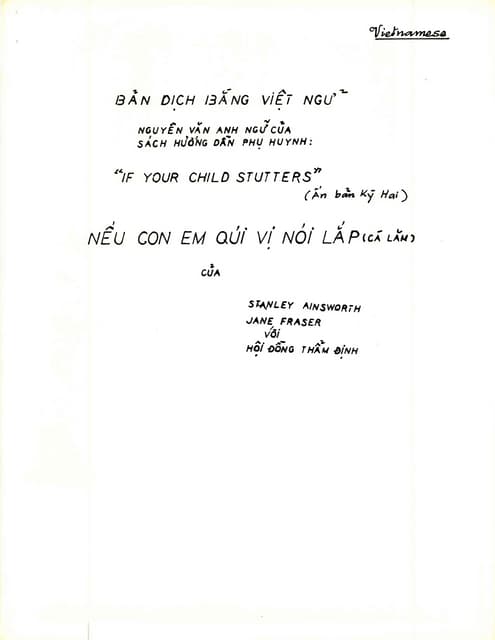 Vietnamese
BẢN DỊCH BẰNG VIỆT NGỮ
NGUYÊN VĂN ANH NGỮ CỦA
SÁCH HƯỚNG DẪN PHỤ HUYNH:
"IF YOUR CHILD STUTTERS"
(Ấn bản Kỳ Hai)
NẾU CON EM QÚI VỊ NÓI LẮP (CÀ LĂM)
CỦA
STANLEY AINSWORTH
JANE FRASER
VỚI
HỘI ĐỒNG THẨM ĐỊNH